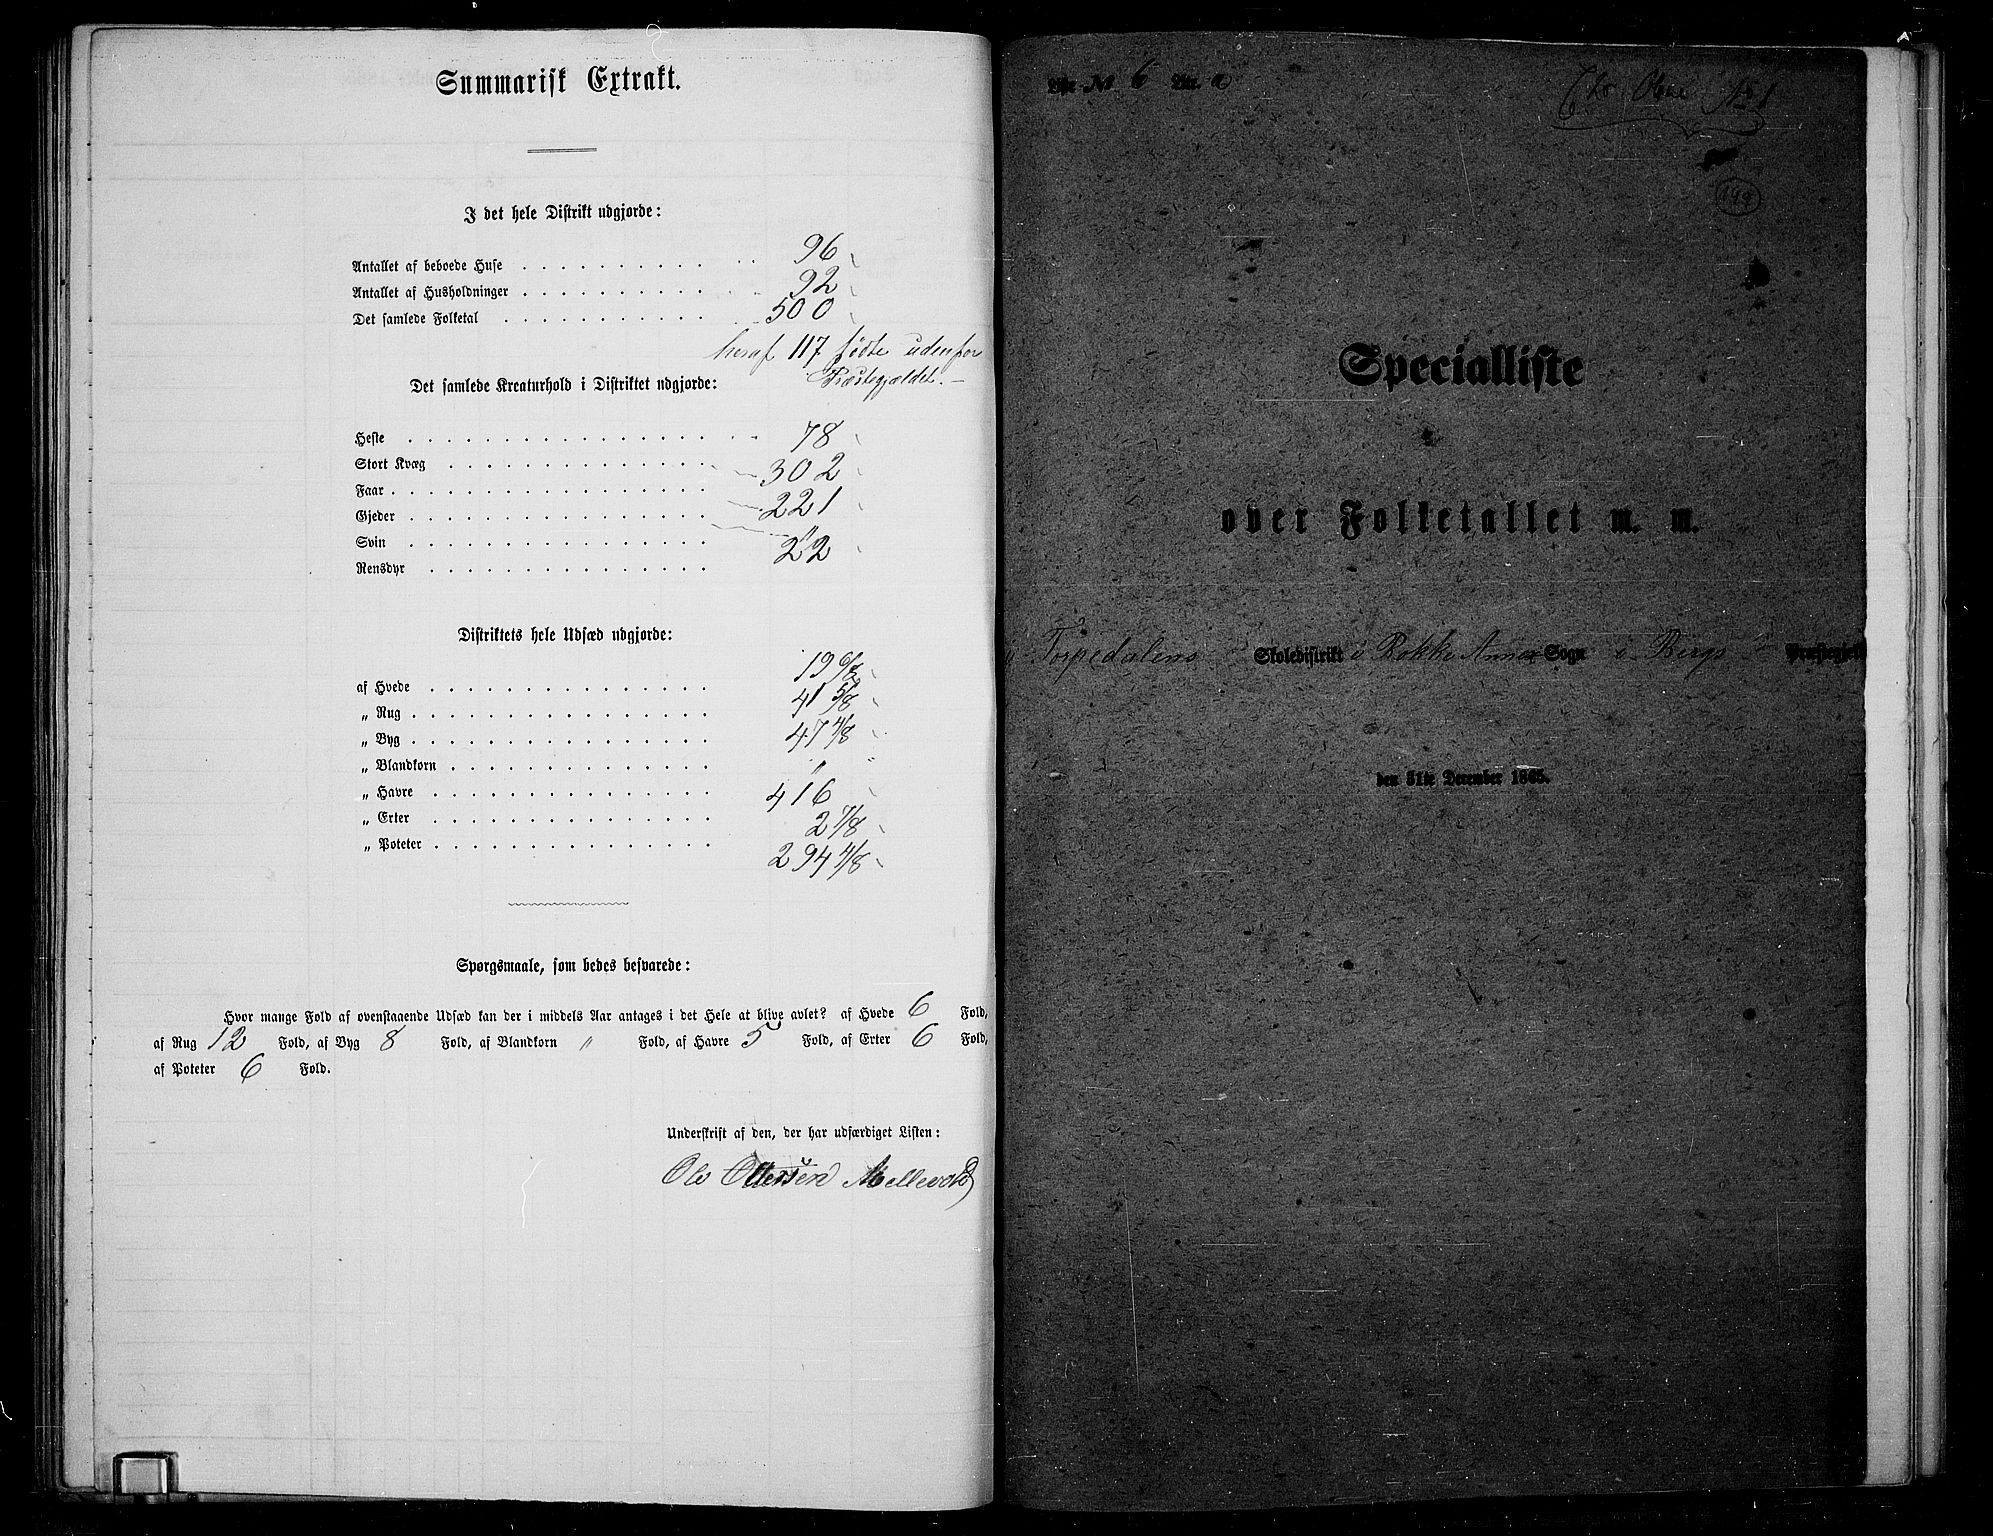 Summarisk Extrakt.
I det hele Distrikt udgjorde:
Antallet af beboede Huse 96
Antallet af Husholdninger 92
Det samlede Folketal 500
heraf 117 fødte udenfor
Præstegjældet. —
Det samlede Kreaturhold i Distriktet udgjorde:
Heste 78
Stort Kvæg 302
Faar 221
Gjeder "
Svin 22
Rensdyr
Distriktets hele Udsæd udgjorde:
af Hvede 19
„ Rug 41 5/8
„ Byg 47 4/8
„ Blandkorn "
„ Havre 416
„ Erter 2 7/8
„ Poteter 294 4/8
Spørgsmaale, som bedes besvarede:
Hvor mange Fold af ovenstaaende Udsæd kan der i middels Aar antages i det Hele at blive avlet? af Hvede 6 Fold,
af Rug 12 Fold, af Byg 8 Fold, af Blandkorn " Fold, af Havre 5 Fold, af Erter 6 Fold,
af Poteter 6 Fold.
Underskrift af den, der har udfærdiget Listen:
Ole Ottersen Mellevold
Liste No 6 Litr. a
No 1
149
Specialliste
over Folketallet m. m.
Torpedalens Skoledistrikt i Rokke Annex Sogn i Bergs Præstegjeld
den 31te December 1865.